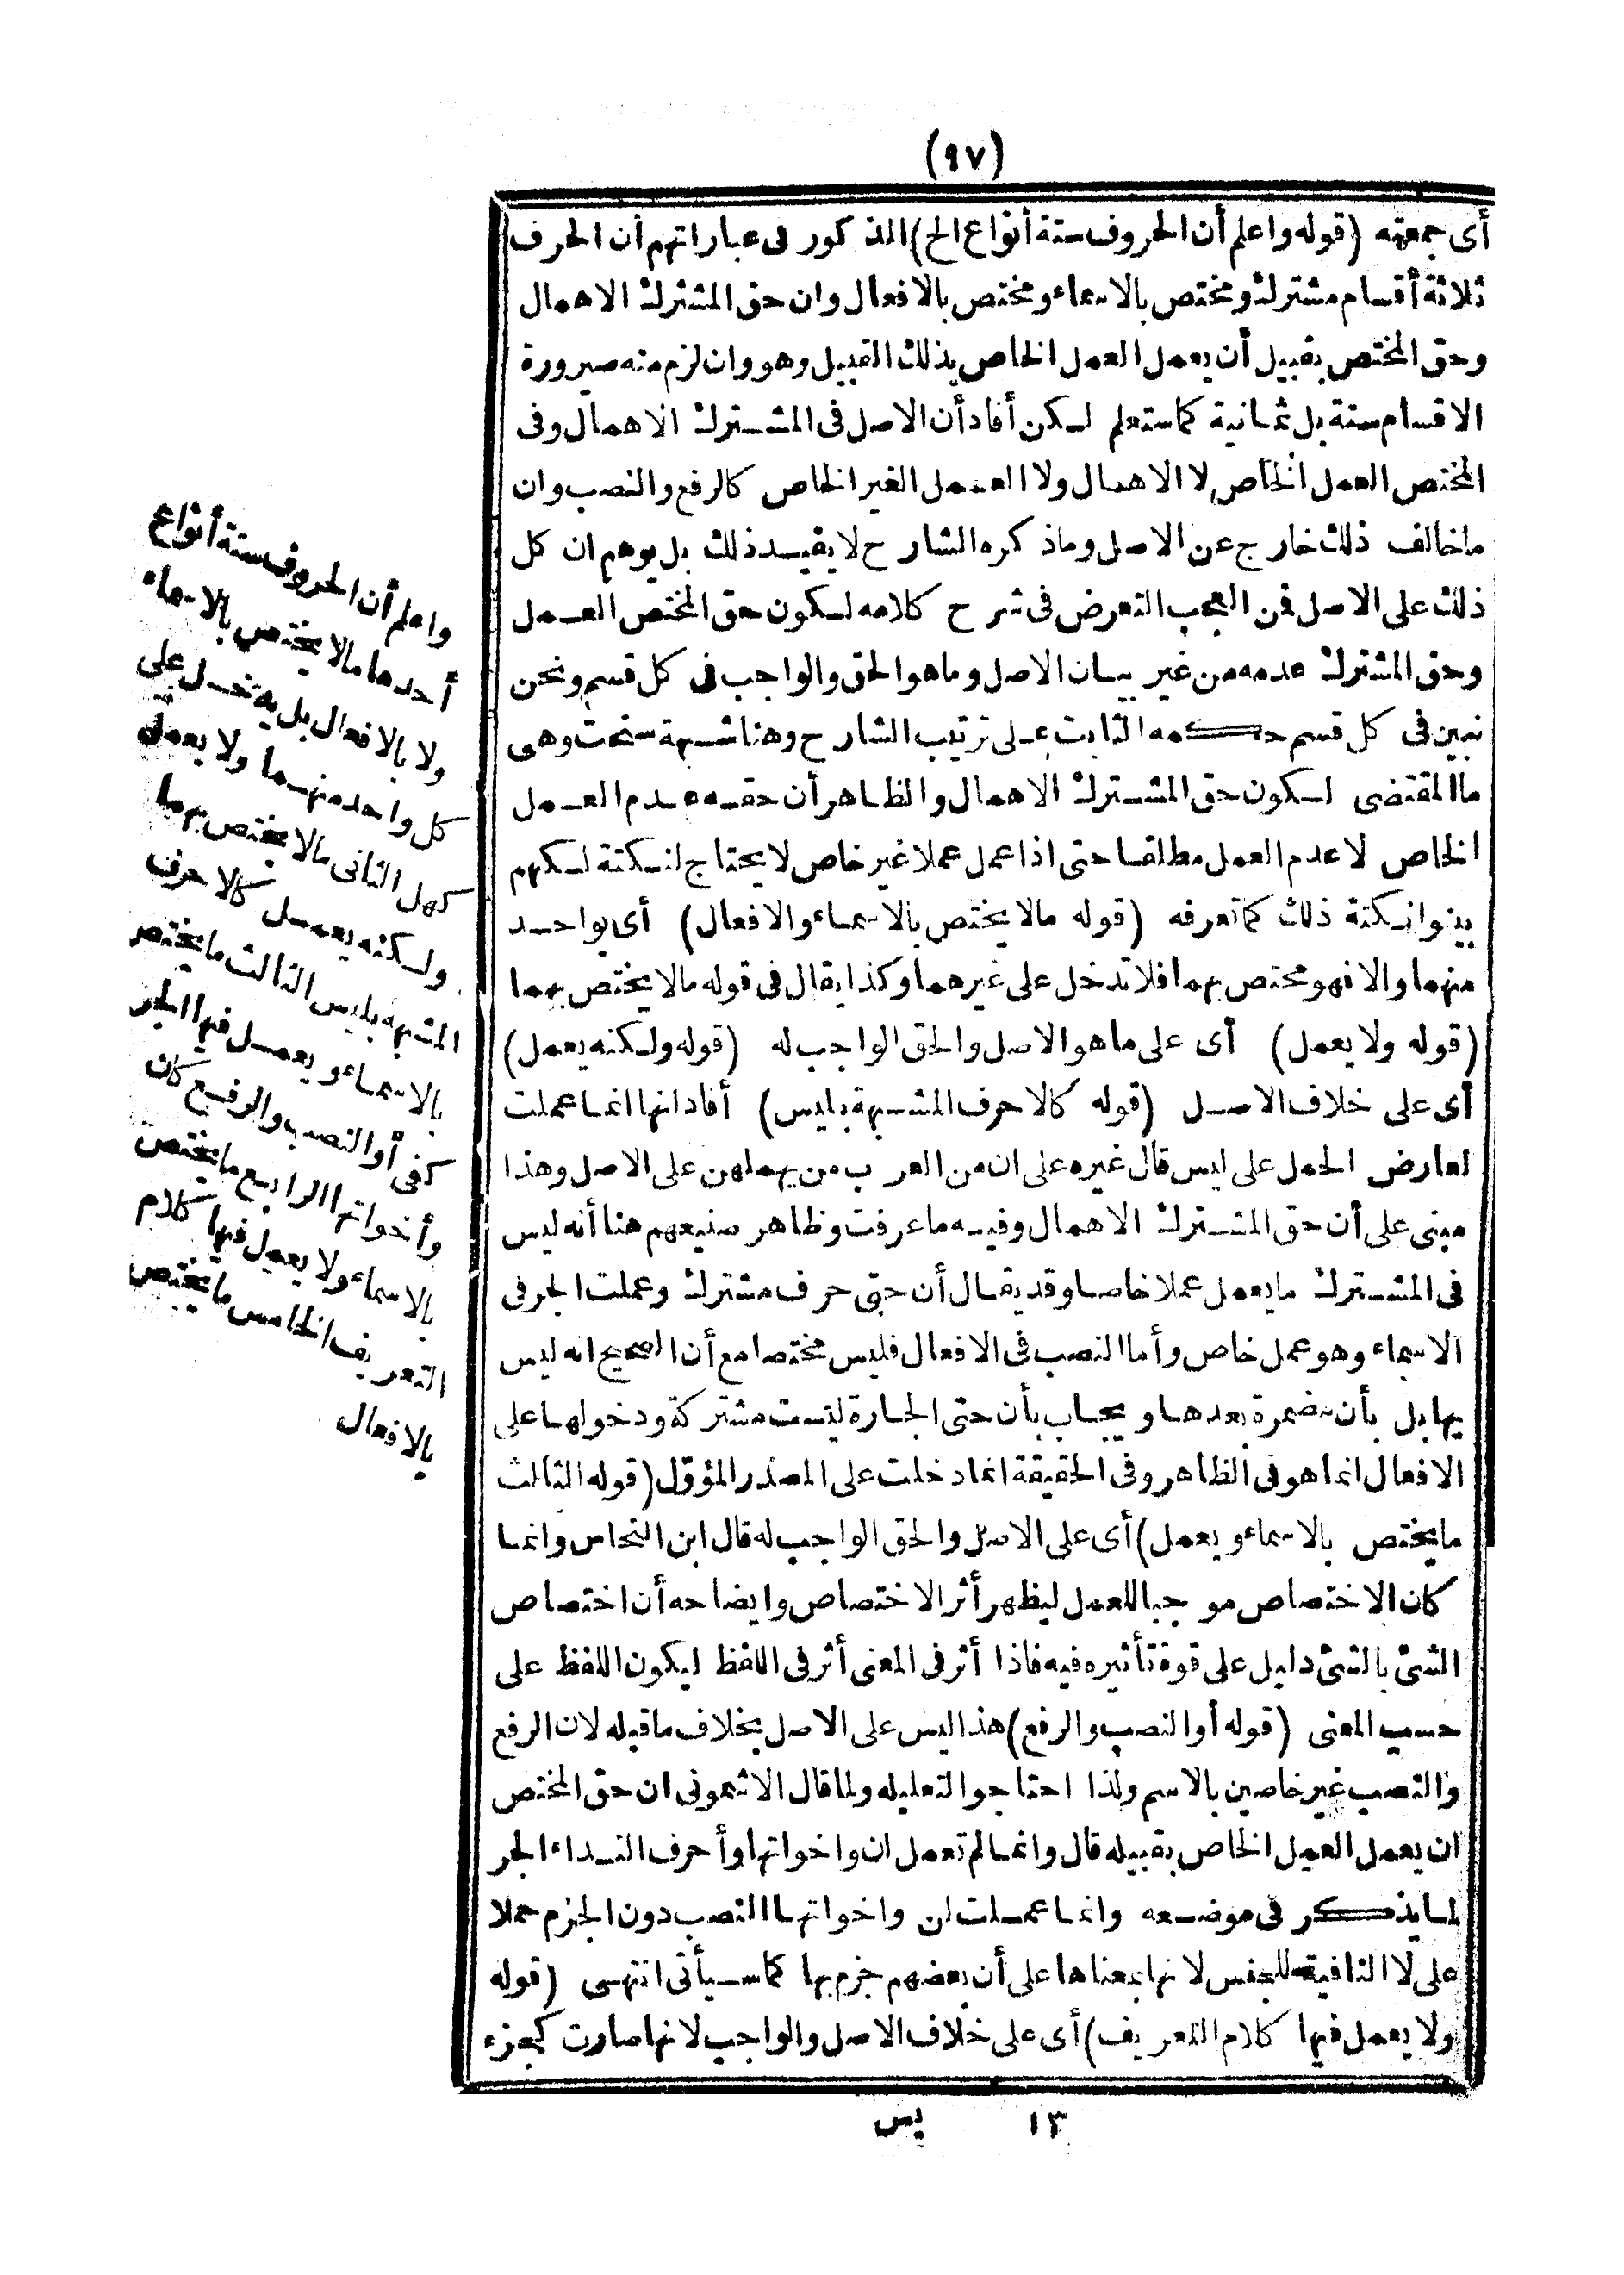 (٩٧)
أى جمعته (قوله واعلم أن الحروف ستة أنواع الخ) المذكور فى عباراتهم أن الحرف
ثلاثة أقسام مشترك ومختص بالاسماء ومختص بالافعال وان حق المشترك الاهمال
وحق المختص بقبيل أن يعمل العمل الخاص بذلك القبيل وهو وان لزم منه صيرورة
الاقسام ستة بل ثمانية كما ستعلم لكن أفاد أن الاصل فى المشترك الاهمال وفى
المختص العمل الخاص لا الاهمال ولا العمل الغير الخاص كالرفع والنصب وان
ما خالف ذلك خارج عن الاصل وما ذكره الشارح لا يفيد ذلك بل يوهم ان كل
ذلك على الاصل فمن العجب التعرض فى شرح كلامه لكون حق المختص العمل
وحق المشترك عدمه من غير بيان الاصل وما هو الحق والواجب فى كل قسم ونحن
نبين فى كل قسم حكمه الثابت على ترتيب الشارح وهنا شبهة سنحت وهى
ما المقتضى لكون حق المشترك الاهمال والظاهر أن حقه عدم العمل
الخاص لا عدم العمل مطلقا حتى اذا عمل عملا غير خاص لا يحتاج لنكتة لكنهم
بينوا نكتة ذلك كما تعرفه (قوله مالا يختص بالاسماء والافعال) أى بواحد
منهما والا فهو مختص بهما فلا تدخل على غيرهما وكذا يقال فى قوله مالا يختص بهما
(قوله ولا يعمل) أى على ما هو الاصل والحق الواجب له (قوله ولكنه يعمل)
أى على خلاف الاصل (قوله كالاحرف المشبهة بليس) أفاد انها انما عملت
لعارض الحمل على ليس قال غيره على ان من العرب من يهملهن على الاصل وهذا
مبنى على أن حق المشترك الاهمال وفيه ما عرفت وظاهر صنيعهم هنا أنه ليس
فى المشترك ما يعمل عملا خاصا وقد يقال أن حتى حرف مشترك وعملت الجر فى
الاسماء وهو عمل خاص وأما النصب فى الافعال فليس مختصا مع أن الصحيح انه ليس
بها بل بأن مضمرة بعدها ويجاب بأن حتى الجارة ليست مشتركة ودخولها على
الافعال انما هو فى الظاهر وفى الحقيقة انما دخلت على المصدر المؤوّل (قوله الثالث
ما يختص بالاسماء ويعمل) أى على الاصل والحق الواجب له قال ابن النحاس وانما
كان الاختصاص موجبا للعمل ليظهر أثر الاختصاص وايضاحه أن اختصاص
الشئ بالشئ دليل على قوة تأثيره فيه فاذا أثر فى المعنى أثر فى اللفظ ليكون اللفظ على
حسب المعنى (قوله أو النصب والرفع) هذا ليس على الاصل بخلاف ما قبله لان الرفع
والنصب غير خاصين بالاسم ولذا احتاجوا لتعليله ولما قال الاشمونى ان حق المختص
ان يعمل العمل الخاص بقبيله قال وانما لم تعمل ان واخواتها وأحرف النداء الجر
لما يذكر فى موضعه وانما عملت لن واخواتها النصب دون الجزم حملا
على لا النافية للجنس لانها بمعناها على أن بعضهم جزم بها كما سيأتى انتهى (قوله
ولا يعمل فيها كلام التعريف) أى على خلاف الاصل والواجب لانها صارت كجزء
١٣ يس
واعلم أن الحروف ستة أنواع
أحدها مالا يختص بالاسماء
ولا بالافعال بل يدخل على
كل واحد منهما ولا يعمل
كهل الثانى مالا يختص بهما
ولكنه يعمل كالاحرف
المشبهة بليس الثالث ما يختص
بالاسماء ويعمل فيها الجر
كفى أو النصب والرفع كان
وأخواتها الرابع ما يختص
بالاسماء ولا يعمل فيها كلام
التعريف الخامس ما يختص
بالافعال